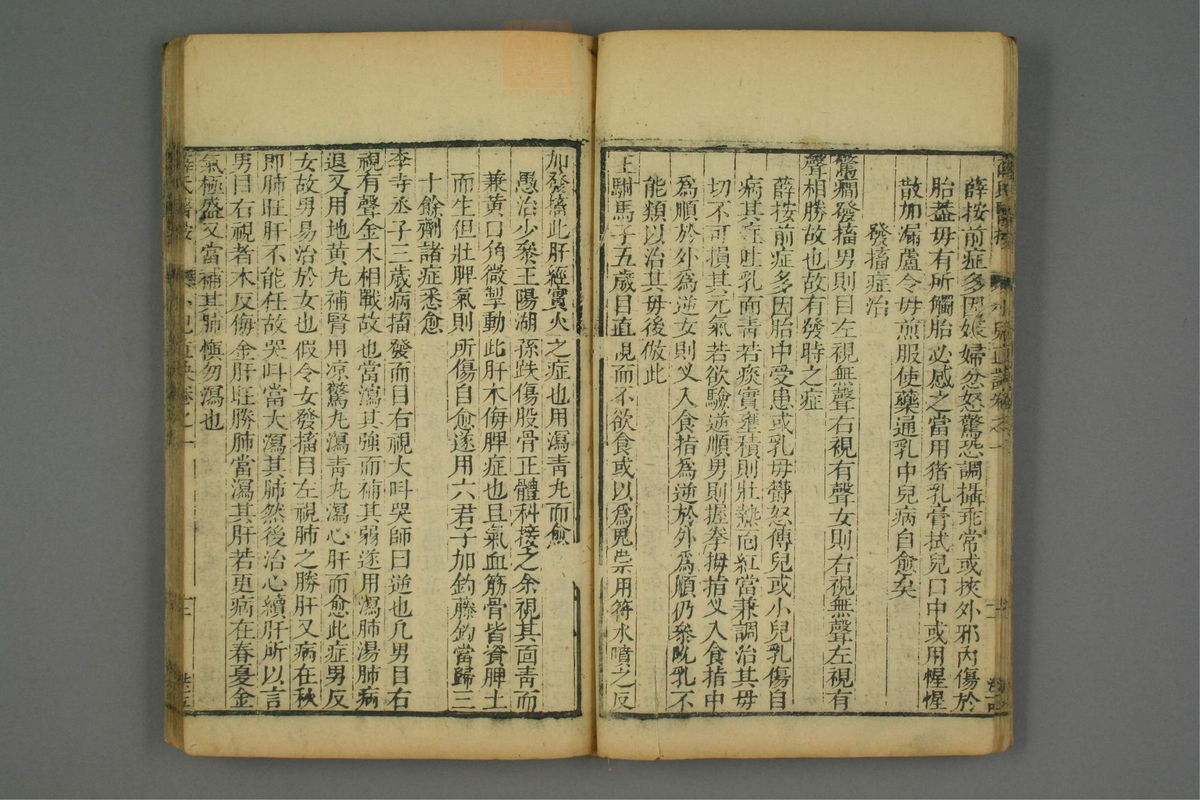 薛按前症多因妊婦忿怒驚恐調攝乖常或挾外邪內傷於
胎蓋毋有所觸胎必感之當用猪乳膏拭兒口中或用惺惺
散加漏盧令毋煎服使藥通乳中兒病自愈矣
發搐症治
驚癇發搐男則目左視無聲右視有聲女則右視無聲左視有
聲相勝故也故有發時之症
薛按前症多因胎中受患或乳毋鬱怒傳兒或小兒乳傷自
病其症吐乳面青若痰實壅積則壯熱面紅當兼調治其毋
切不可損其元氣若欲驗逆順男則握拳拇指叉入食指中
爲順於外爲逆女則叉入食指爲逆於外爲順仍叅吮乳不
能類以治其毋後倣此
王駙馬子五歲目直視而不欲食或以爲鬼祟用符水噴之反
加發搐此肝經實火之症也用瀉青丸而愈
愚治少叅王陽湖孫跌傷股骨正體科接之余視其面青而
兼黃口角微掣動此肝木侮脾症也且氣血筋骨皆資脾土
而生但壯脾氣則所傷自愈遂用六君子加鈎藤鈎當歸三
十餘劑諸症悉愈
李寺丞子三歲病搐發而目右視大呌哭師曰逆也凡男目右
視有聲金木相戰故也當瀉其強而補其弱遂用瀉肺湯肺病
退又用地黃丸補腎用凉驚丸瀉青丸瀉心肝而愈此症男反
女故男易治於女也假令女發搐目左視肺之勝肝又病在秋
即肺旺肝不能任故哭呌當大瀉其肺然後治心續肝所以言
男目右視者木反侮金肝旺勝肺當瀉其肝若更病在春夏金
氣極盛又當補其肺愼勿瀉也